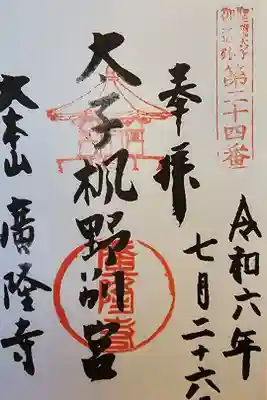 聖徳太子
御遺跡
第二十四番
奉拝
太子楓野別宮
大本山 廣隆寺
令和六年
七月二十六
廣隆寺